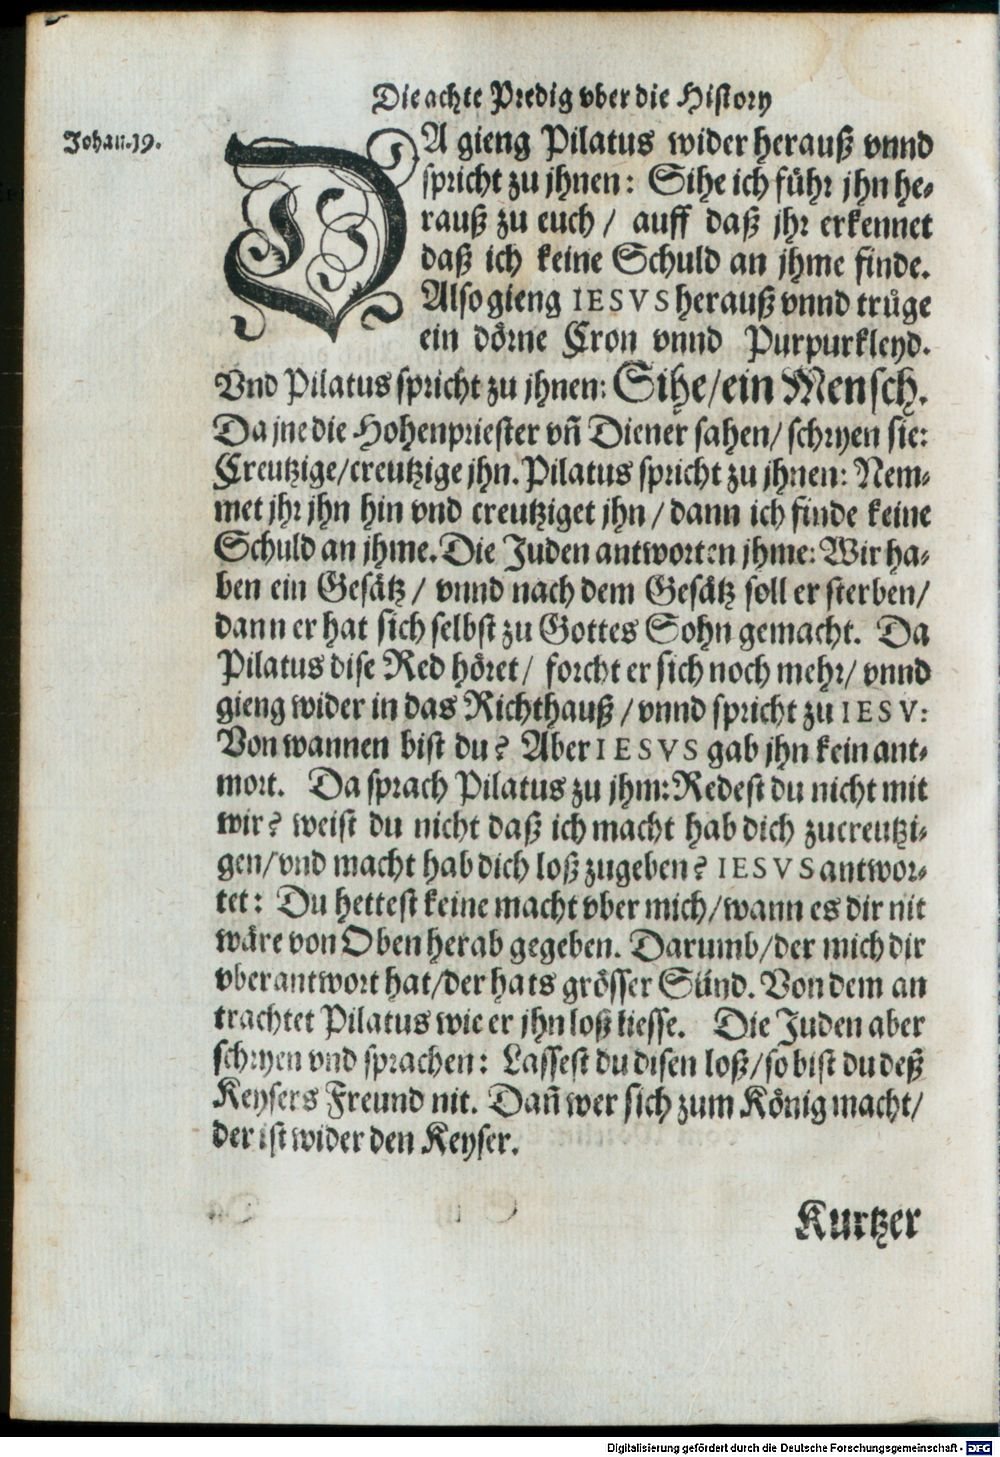 Die achte Predig vber die History
Johan. 19.
DA gieng Pilatus wider herauß vnnd
spricht zu jhnen: Sihe ich führ jhn he-
rauß zu euch / auff daß jhr erkennet
daß ich keine Schuld an jhme finde.
Also gieng IESVS herauß vnnd truͤge
ein doͤrne Cron vnnd Purpurkleyd.
Vnd Pilatus spricht zu jhnen: Sihe / ein Mensch.
Da jne die Hohenpriester vñ Diener sahen / schryen sie:
Creutzige / creutzige jhn. Pilatus spricht zu jhnen: Nem-
met jhr jhn hin vnd creutziget jhn / dann ich finde keine
Schuld an jhme. Die Juden antworten jhme: Wir ha-
ben ein Gesaͤtz / vnnd nach dem Gesaͤtz soll er sterben /
dann er hat sich selbst zu Gottes Sohn gemacht. Da
Pilatus dise Red hoͤret / forcht er sich noch mehr / vnnd
gieng wider in das Richthauß / vnnd spricht zu IESV:
Von wannen bist du? Aber IESVS gab jhn kein ant-
wort. Da sprach Pilatus zu jhm: Redest du nicht mit
wir? weist du nicht daß ich macht hab dich zucreutzi-
gen / vnd macht hab dich loß zugeben? IESVS antwor-
tet: Du hettest keine macht vber mich / wann es dir nit
waͤre von Oben herab gegeben. Darumb / der mich dir
vberantwort hat / der hats groͤsser Suͤnd. Von dem an
trachtet Pilatus wie er jhn loß liesse. Die Juden aber
schryen vnd sprachen: Lassest du disen loß / so bist du deß
Keysers Freund nit. Dañ wer sich zum Koͤnig macht /
der ist wider den Keyser.
Kurtzer
Digitalisierung gefördert durch die Deutsche Forschungsgemeinschaft - DFG